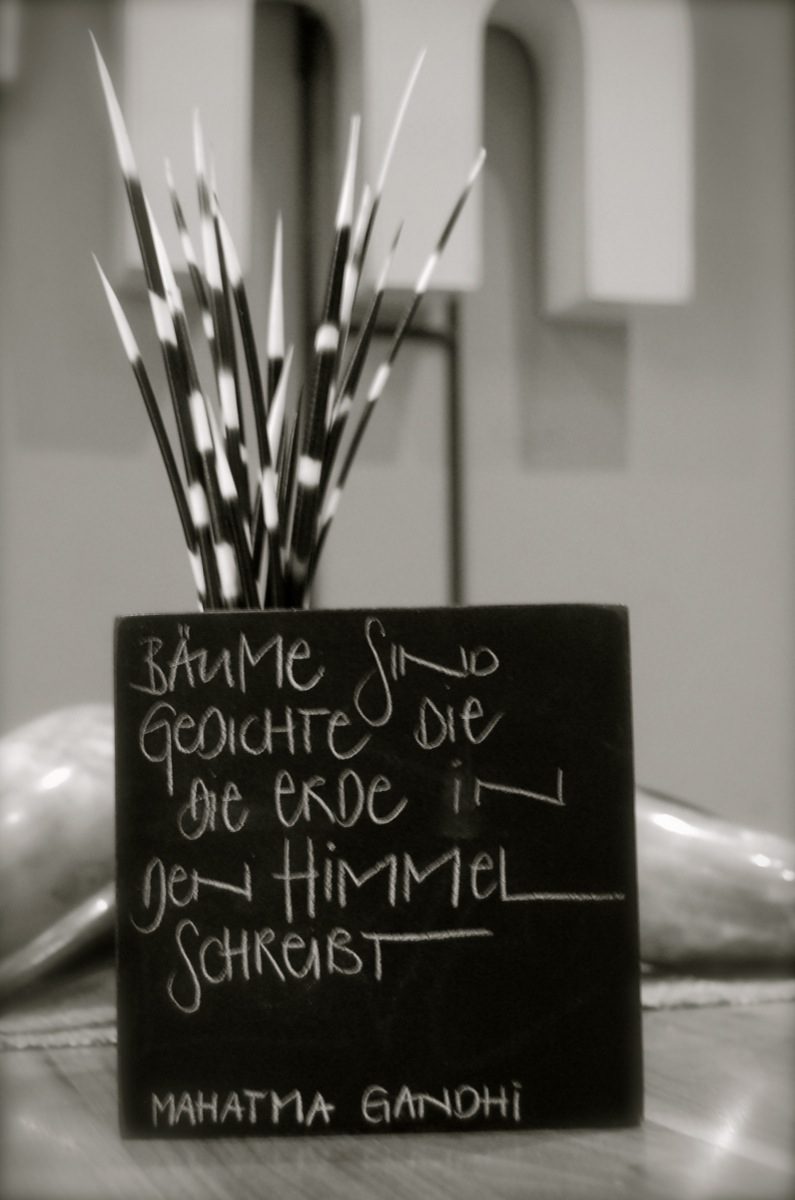 BÄUME SIND
GEDICHTE DIE
DIE ERDE IN
DEN HIMMEL
SCHREIBT
MAHATMA GANDHI